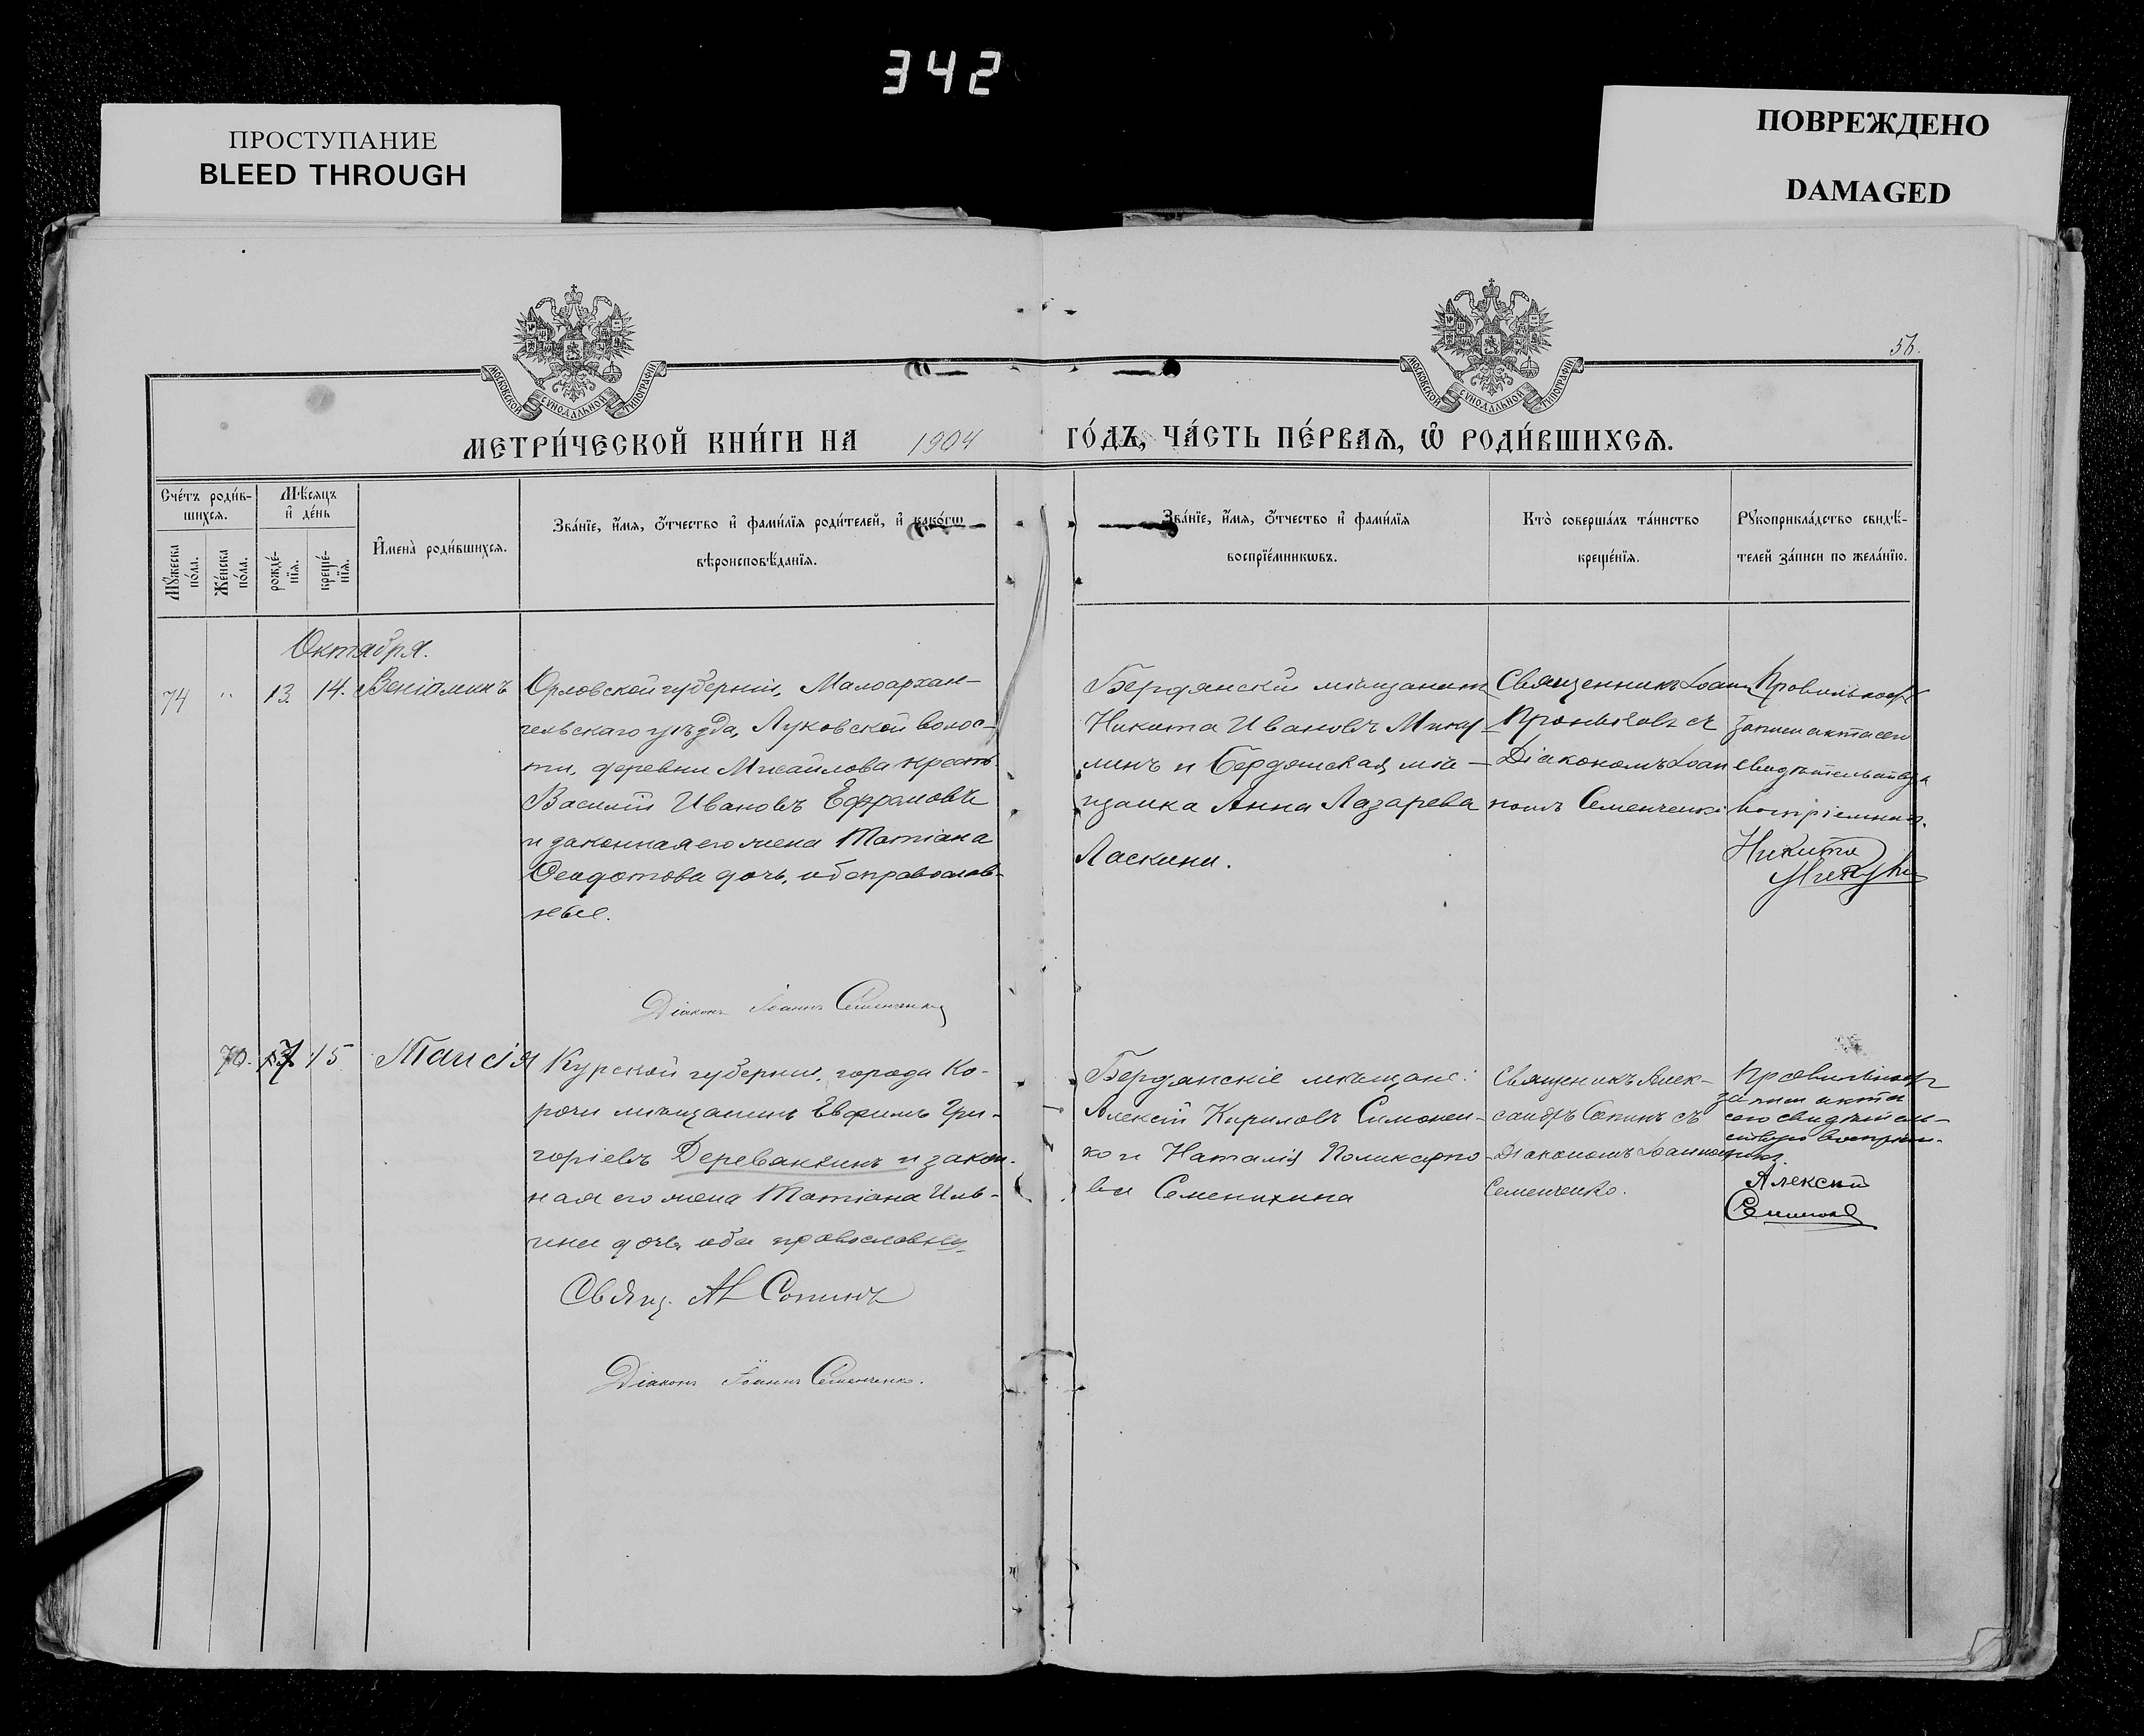 342
ПРОСТУПАНИЕ
BLEED THROUGH
ПОВРЕЖДЕНО
DAMAGED
56.
МОСКОВСКОЙ СУНОДАЛЬНОЙ ТИПОГРАФІИ
МОСКОВСКОЙ СУНОДАЛЬНОЙ ТИПОГРАФІИ
МЕТРИ́ЧЕСКОЙ КНИ́ГИ НА 1904 ГО́ДЪ, ЧА́СТЬ ПЕ́РВАѦ, Ѡ҆ РОДИ́ВШИХСѦ.
Сче́тъ роди́в-
шихсѧ.
Мꙋ́жеска
по́ла.
Же́нска
по́ла.
Мѣ́сѧцъ
и҆ де́нь
рожде́-
нїѧ.
креще́-
нїѧ.
И҆мена̀ роди́вшихсѧ.
Зва́нїе, и҆́мѧ, ѻ҆́тчество и҆ фами́лїѧ роди́телей, и҆ како́гѡ
вѣроисповѣ́данїѧ.
Зва́нїе, и҆́мѧ, ѻ҆́тчество и҆ фами́лїѧ
воспрїе́мникѡвъ.
Кто̀ соверша́лъ та́инство
креще́нїѧ.
Рꙋкоприкла́дство свидѣ́-
телей за́писи по жела́нїю.
Октября.
74 " 13. 14. Веніаминъ
Орловской губерніи, Малоархан-
гельскаго уѣзда, Луковской волос-
ти, деревни Мисайлова крест.
Василій Ивановъ Ефрамовъ
и законная его жена Татіана
Ѳеодотова дочь, оба православ-
ные.
Діаконъ Іоаннъ Семенченко
Бердянскій мѣщанинъ
Никита Ивановъ Мику-
линъ и Бердянская мѣ-
щанка Анна Лазарева
Ласкина.
Священникъ Іоаннъ
съ
Діакономъ Іоан
номъ Семенченко
Правильность
записи акта сего
свидѣтельствуя
воспріемникъ.
Никита
Мику
70. 7 15 Таисія
Курской губерніи, города Ко-
рочи мѣщанинъ Евфимъ Гри-
горіевъ Деревянкинъ и закон-
ная его жена Татіана Иль-
ина дочь оба православны
Свящ. Ал Сопинъ
Діаконъ Іоаннъ Семенченко.
Бердянскіе мѣщане:
Алексій Кириловъ Симонен-
ко и Наталія Поликарпо-
ва Семенихина
Священникъ Алек-
сандръ Сопинъ съ
Діакономъ Іоанномъ
Семенченко.
Правильность
записи акта
сего свидѣтель-
ствую воспріем-
никъ.
Алексій